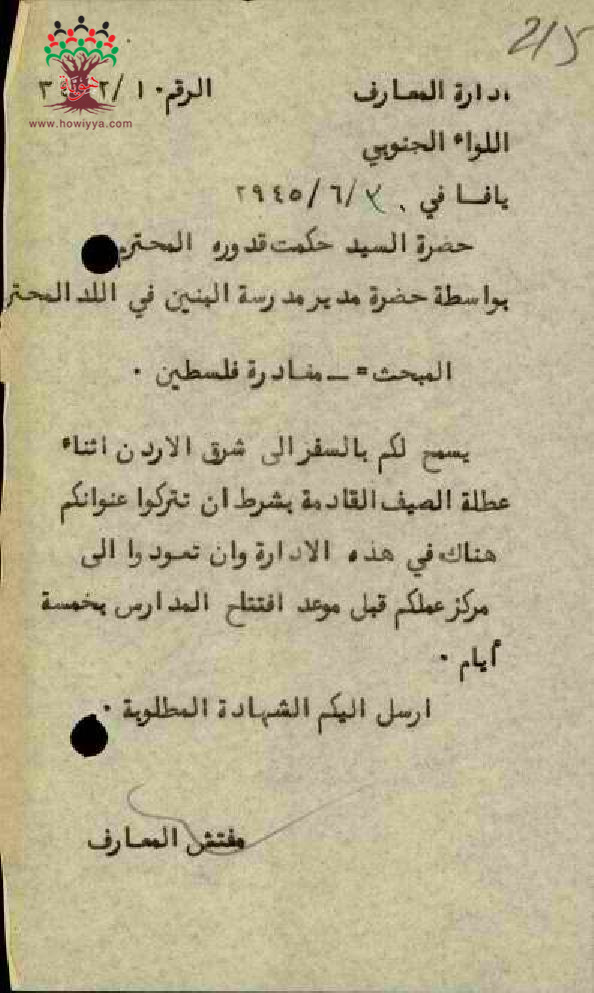 215
هوية
www.howiyya.com
ادارة المعارف الرقم ١٠/٢
اللواء الجنوبي
يافا في ٦/٢٩٤٥
حضرة السيد حكمت قدوره المحترم
بواسطة حضرة مدير مدرسة البنين في اللد المحتر
المبحث =ـ مغادرة فلسطين ٠
يسمح لكم بالسفر الى شرق الاردن اثناء
عطلة الصيف القادمة بشرط ان تتركوا عنوانكم
هناك في هذه الادارة وان تعودوا الى
مركز عملكم قبل موعد افتتاح المدارس بخمسة
أيام ٠
ارسل اليكم الشهادة المطلوبة ٠
مفتش المعارف